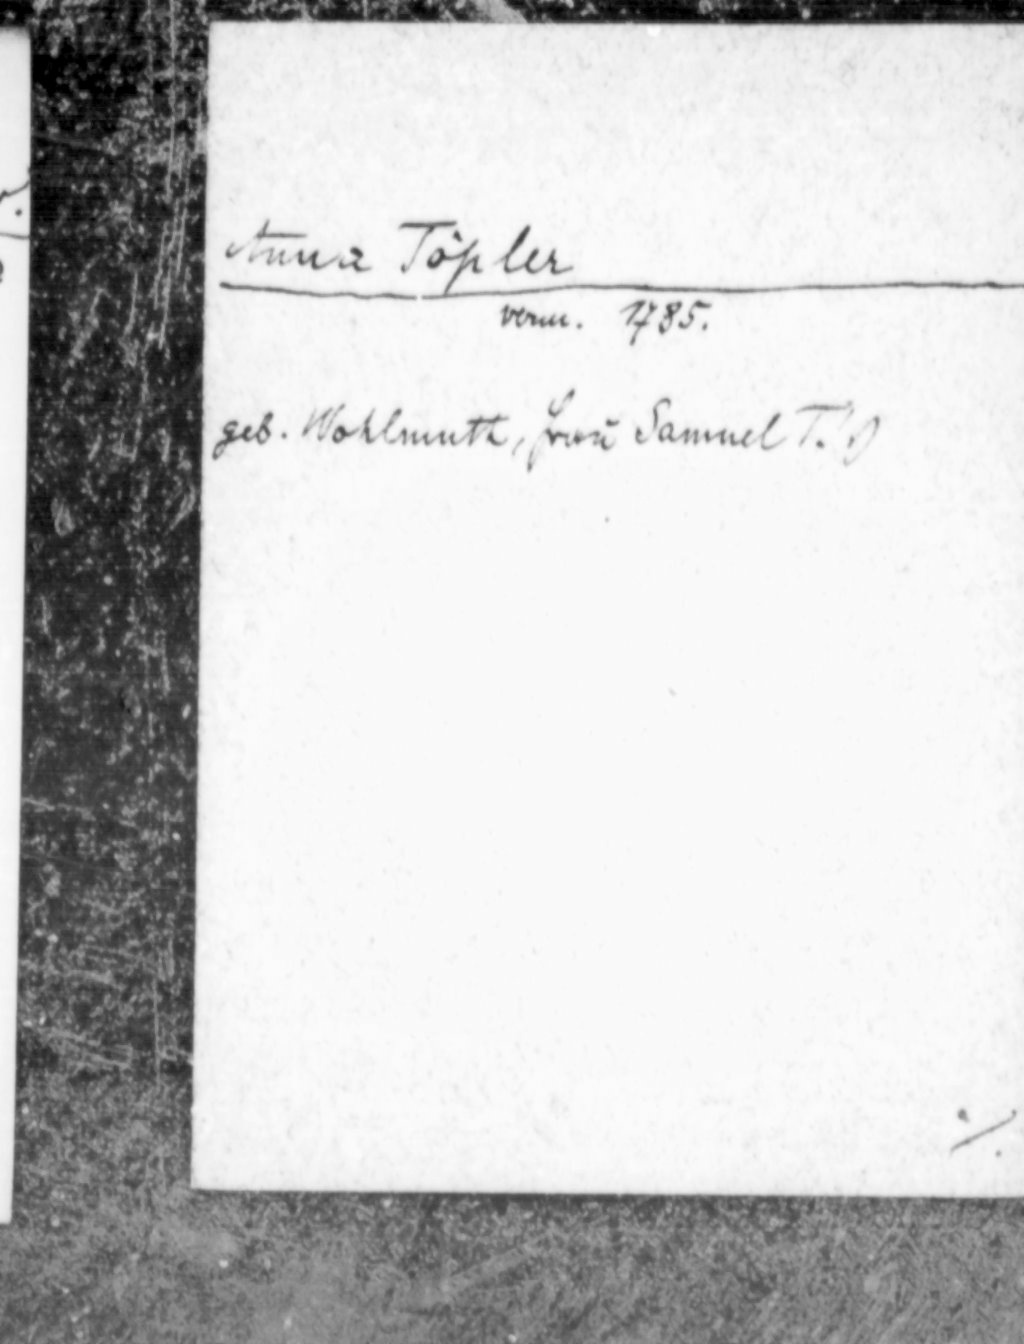 Anna Töpler
verm. 1785.
geb. Wohlmuth, Frau Samuel T.'s
./.